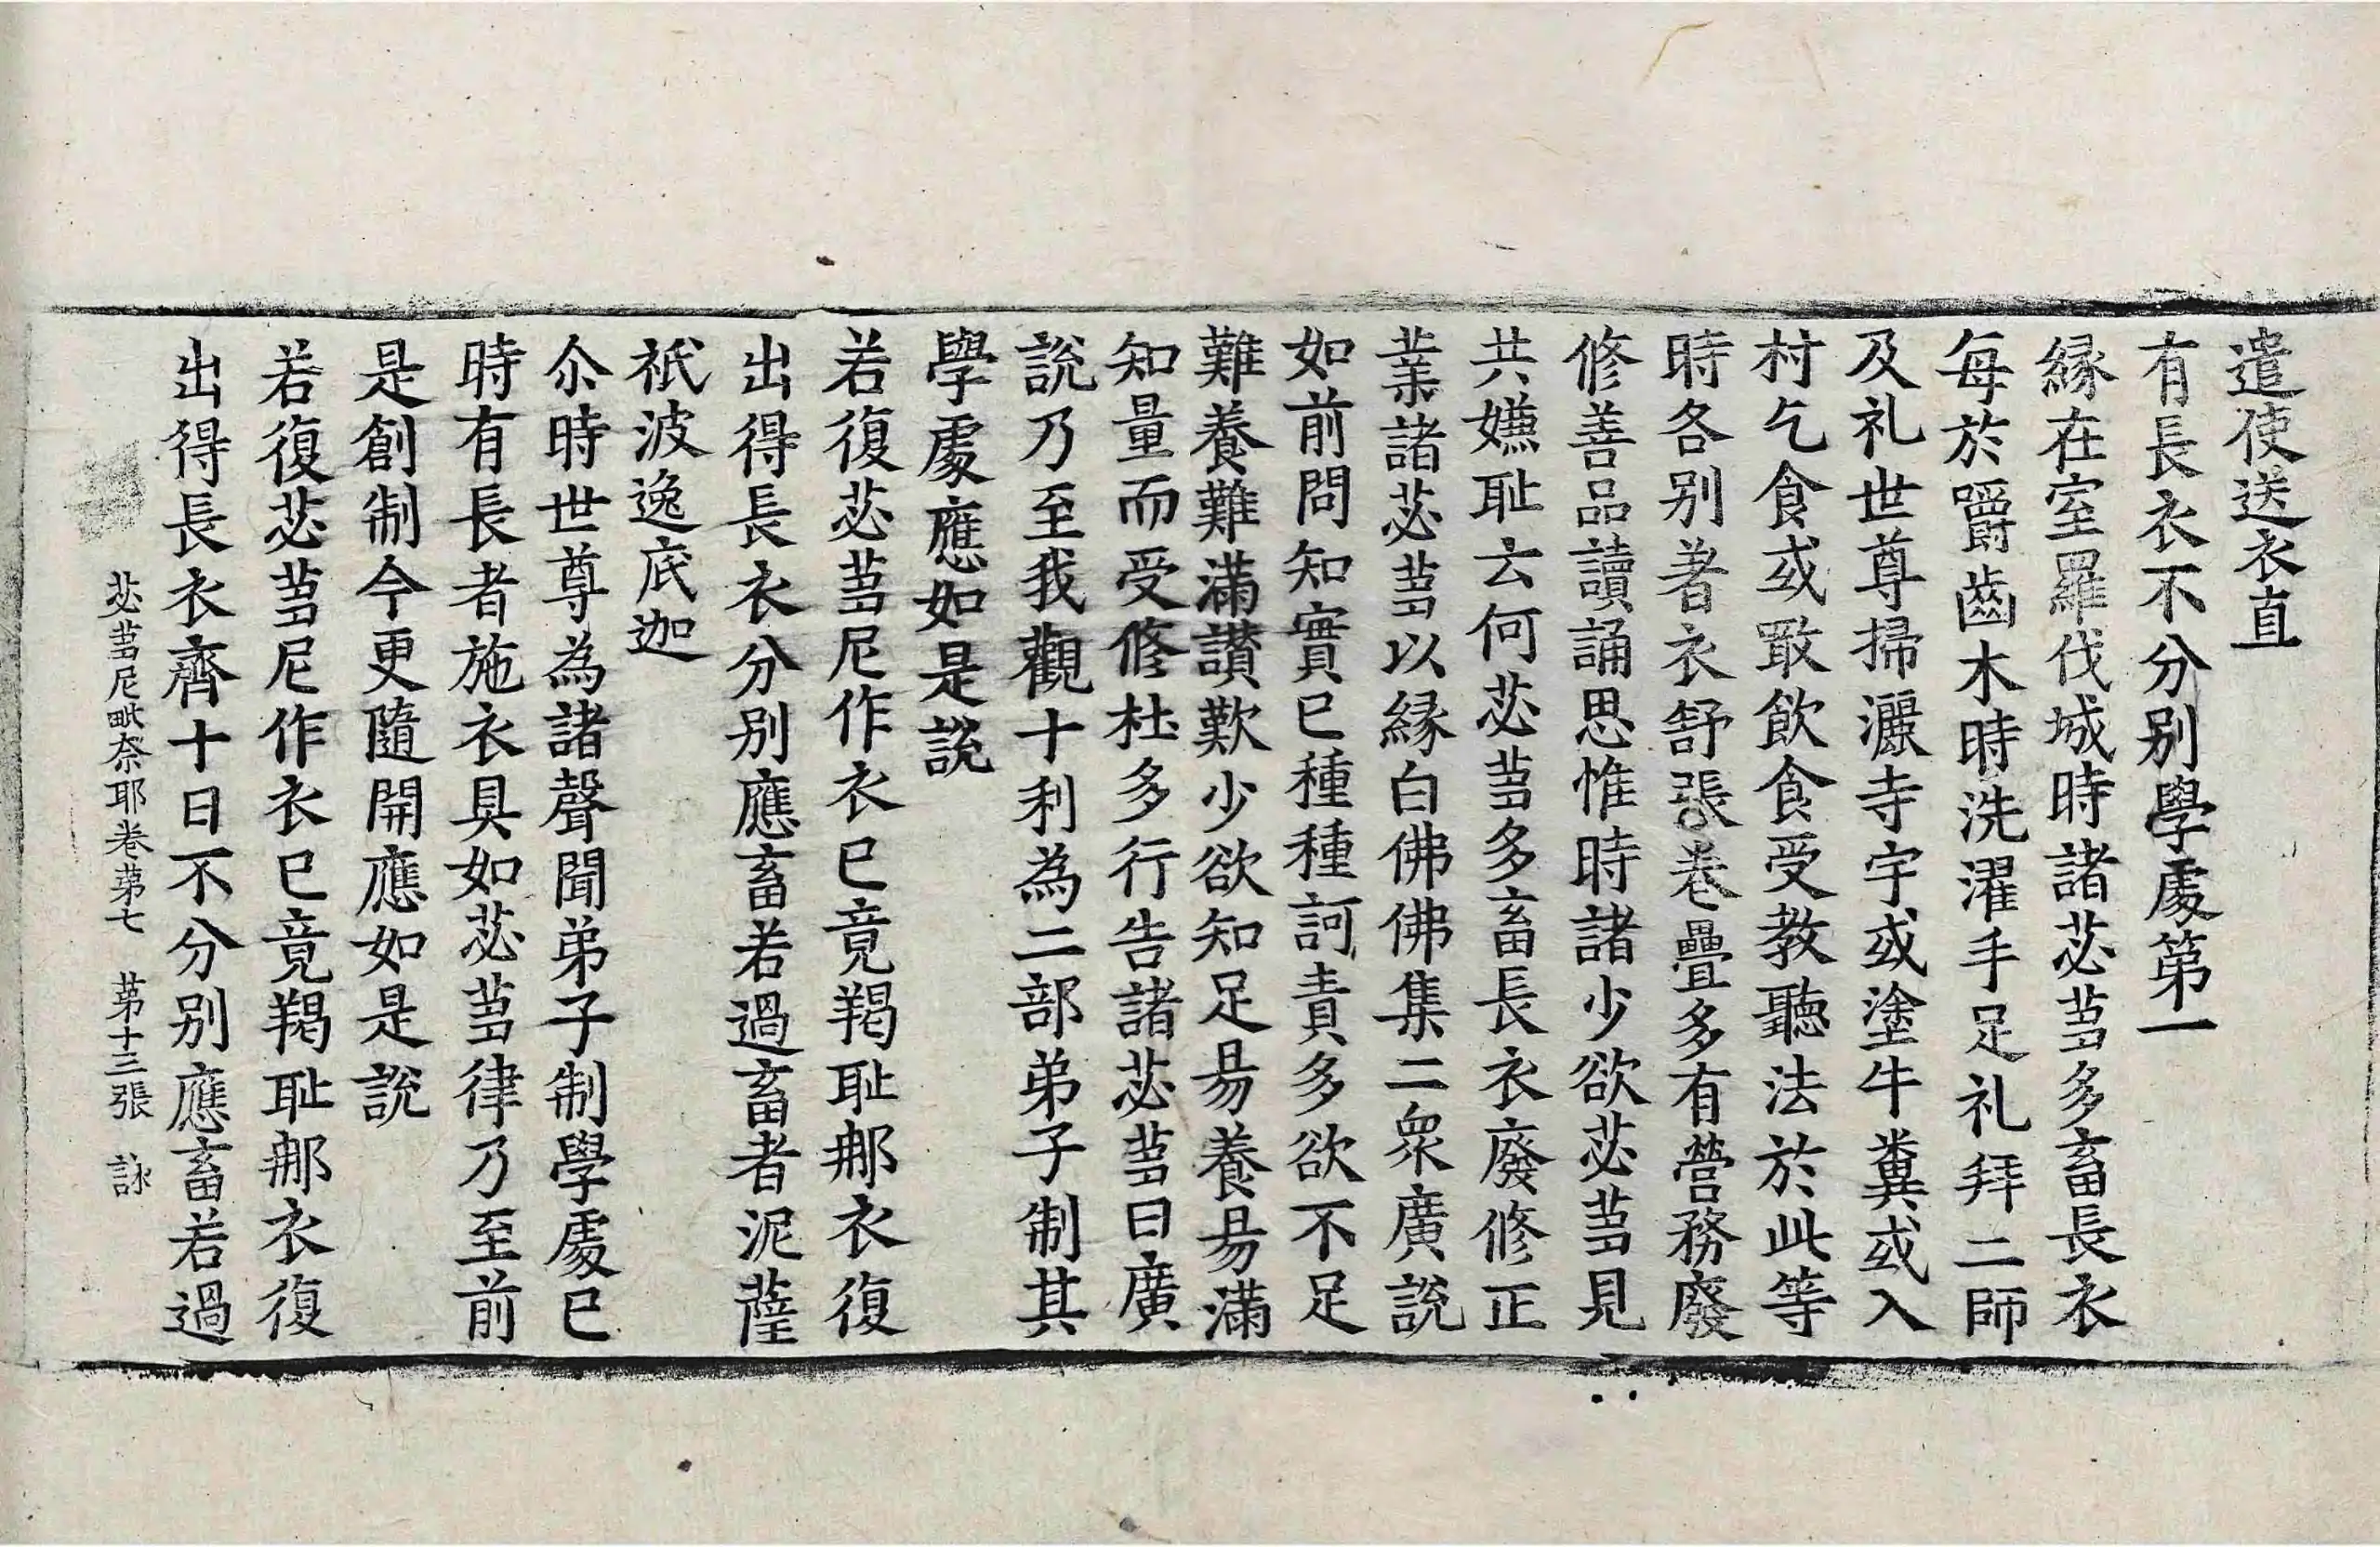 遣使送衣直
有長衣不分别學處第一
縁在室羅伐城時諸苾芻多畜長衣
每於嚼齒木時洗濯手足礼拜二師
及礼世尊掃灑寺宇或塗牛糞或入
村乞食或噉飲食受教聽法於此等
時各别著衣舒張卷疊多有營務廢
修善品讀誦思惟時諸少欲苾芻見
共嫌耻云何苾芻多畜長衣廢修正
業諸苾芻以縁白佛佛集二衆廣説
如前問知實已種種訶責多欲不足
難養難滿讃歎少欲知足易養易滿
知量而受修杜多行告諸苾芻曰廣
説乃至我觀十利為二部弟子制其
學處應如是説
若復苾芻尼作衣已竟羯耻那衣復
出得長衣分别應畜若過畜者泥薩
祇波逸底迦
尒時世尊為諸聲聞弟子制學處已
時有長者施衣具如苾芻律乃至前
是創制今更隨開應如是説
若復苾芻尼作衣已竟羯耻那衣復
出得長衣齊十日不分别應畜若過
苾芻尼毗奈耶卷苐七 苐十三張 詠